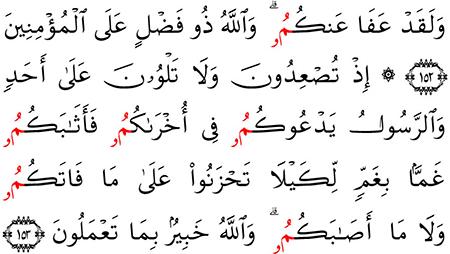 وَلَقَدْ عَفَا عَنكُمُۥۗ وَٱللَّهُ ذُو فَضْلٍ عَلَى ٱلْمُؤْمِنِينَ
١٥٢ ۞ إِذْ تُصْعِدُونَ وَلَا تَلْوُۥنَ عَلَىٰ أَحَدٍ
وَٱلرَّسُولُ يَدْعُوكُمُۥ فِى أُخْرَىٰكُمُۥ فَأَثَٰبَكُمُۥ
غَمًّۢا بِغَمٍّ لِّكَيْلَا تَحْزَنُوا۟ عَلَىٰ مَا فَاتَكُمُۥ
وَلَا مَا أَصَٰبَكُمُۥۗ وَٱللَّهُ خَبِيرٌۢ بِمَا تَعْمَلُونَ ١٥٣